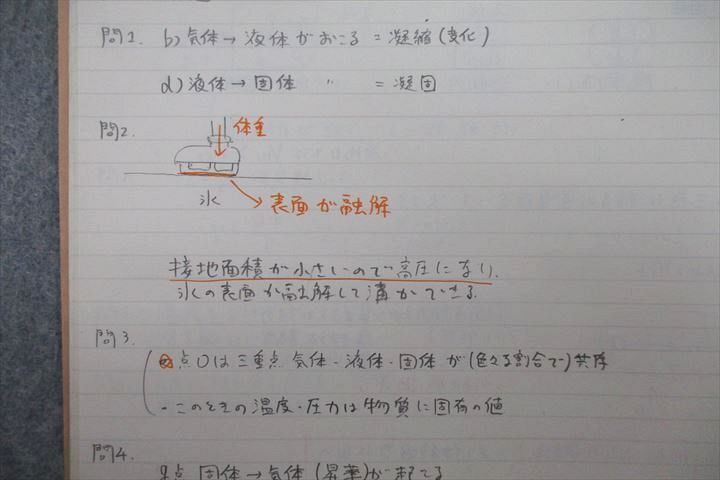 問1. b) 気体→液体がおこる = 凝縮(変化)
d) 液体→固体 〃 = 凝固
問2.
体重
氷
表面が融解
接地面積が小さいので高圧になり、
氷の表面が融解して溝ができる
問3.
点Oは三重点 気体・液体・固体が(色々な割合で)共存
・このときの温度・圧力は物質に固有の値
問4.
点 固体→気体(昇華)が起こる